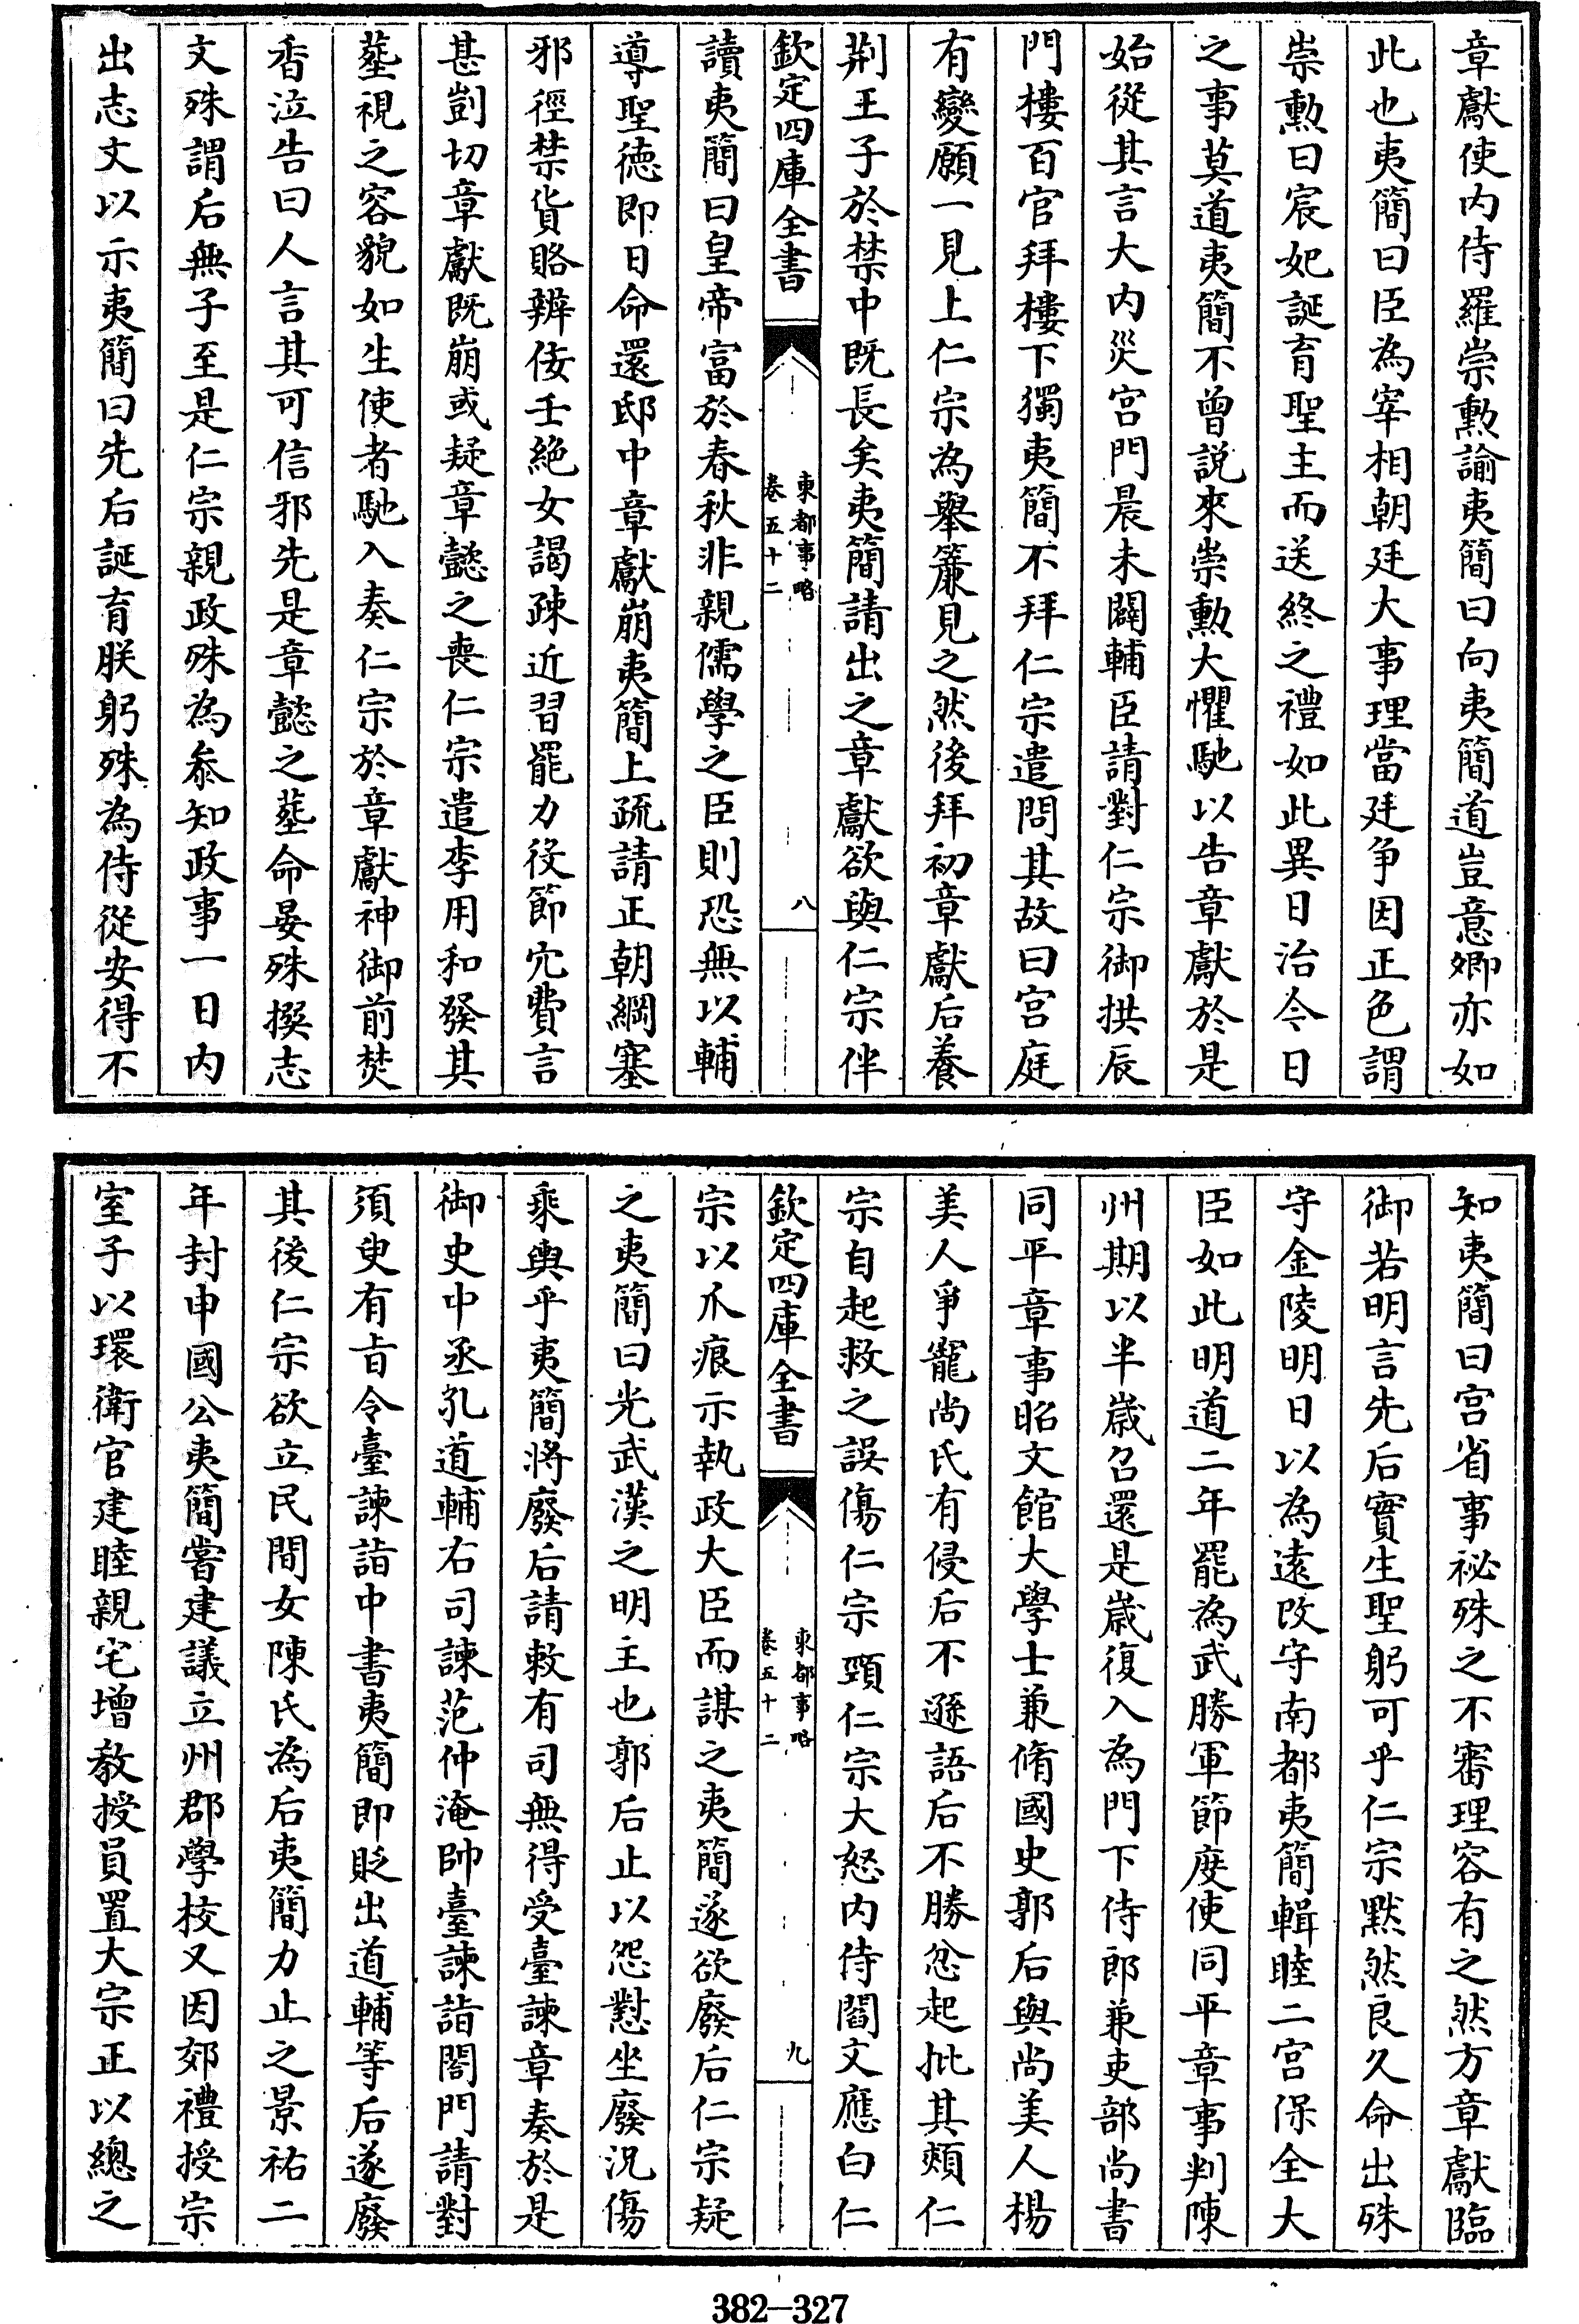 章獻使内侍羅崇勲諭夷簡曰向夷簡道豈意卿亦如
此也夷簡曰臣為宰相朝廷大事理當廷争因正色謂
崇勲曰宸妃誕育聖主而送終之禮如此異日治今日
之事莫道夷簡不曾説來崇勲大懼馳以告章獻於是
始從其言大内災宫門晨未闢輔臣請對仁宗御拱辰
門樓百官拜樓下獨夷簡不拜仁宗遣問其故曰宫庭
有變願一見上仁宗為舉簾見之然後拜初章獻后養
荆王子於禁中既長矣夷簡請出之章獻欲與仁宗伴
欽定四庫全書
東都事略
卷五十二
八
讀夷簡曰皇帝富於春秋非親儒學之臣則恐無以輔
導聖徳即日命還邸中章獻崩夷簡上疏請正朝綱塞
邪徑禁貨賂辨佞壬絶女謁疎近習罷力役節冗費言
甚剴切章獻既崩或疑章懿之喪仁宗遣李用和發其
塟視之容貌如生使者馳入奏仁宗於章獻神御前焚
香泣告曰人言其可信邪先是章懿之塟命晏殊撰志
文殊謂后無子至是仁宗親政殊為叅知政事一日内
出志文以示夷簡曰先后誕育朕躬殊為侍從安得不
知夷簡曰宫省事祕殊之不審理容有之然方章獻臨
御若明言先后實生聖躬可乎仁宗黙然良久命出殊
守金陵明日以為遠改守南都夷簡輯睦二宫保全大
臣如此明道二年罷為武勝軍節度使同平章事判陳
州期以半歳召還是歳復入為門下侍郎兼吏部尚書
同平章事昭文館大學士兼脩國史郭后與尚美人楊
美人爭寵尚氏有侵后不遜語后不勝忿起批其頰仁
宗自起救之誤傷仁宗頸仁宗大怒内侍閻文應白仁
欽定四庫全書
東都事略
卷五十二
九
宗以爪痕示執政大臣而謀之夷簡遂欲廢后仁宗疑
之夷簡曰光武漢之明主也郭后止以怨懟坐廢況傷
乘輿乎夷簡將廢后請敕有司無得受臺諫章奏於是
御史中丞孔道輔右司諫范仲淹帥臺諫詣閤門請對
須臾有旨令臺諫詣中書夷簡即貶出道輔等后遂廢
其後仁宗欲立民間女陳氏為后夷簡力止之景祐二
年封申國公夷簡嘗建議立州郡學校又因郊禮授宗
室子以環衛官建睦親宅增教授員置大宗正以總之
382—327